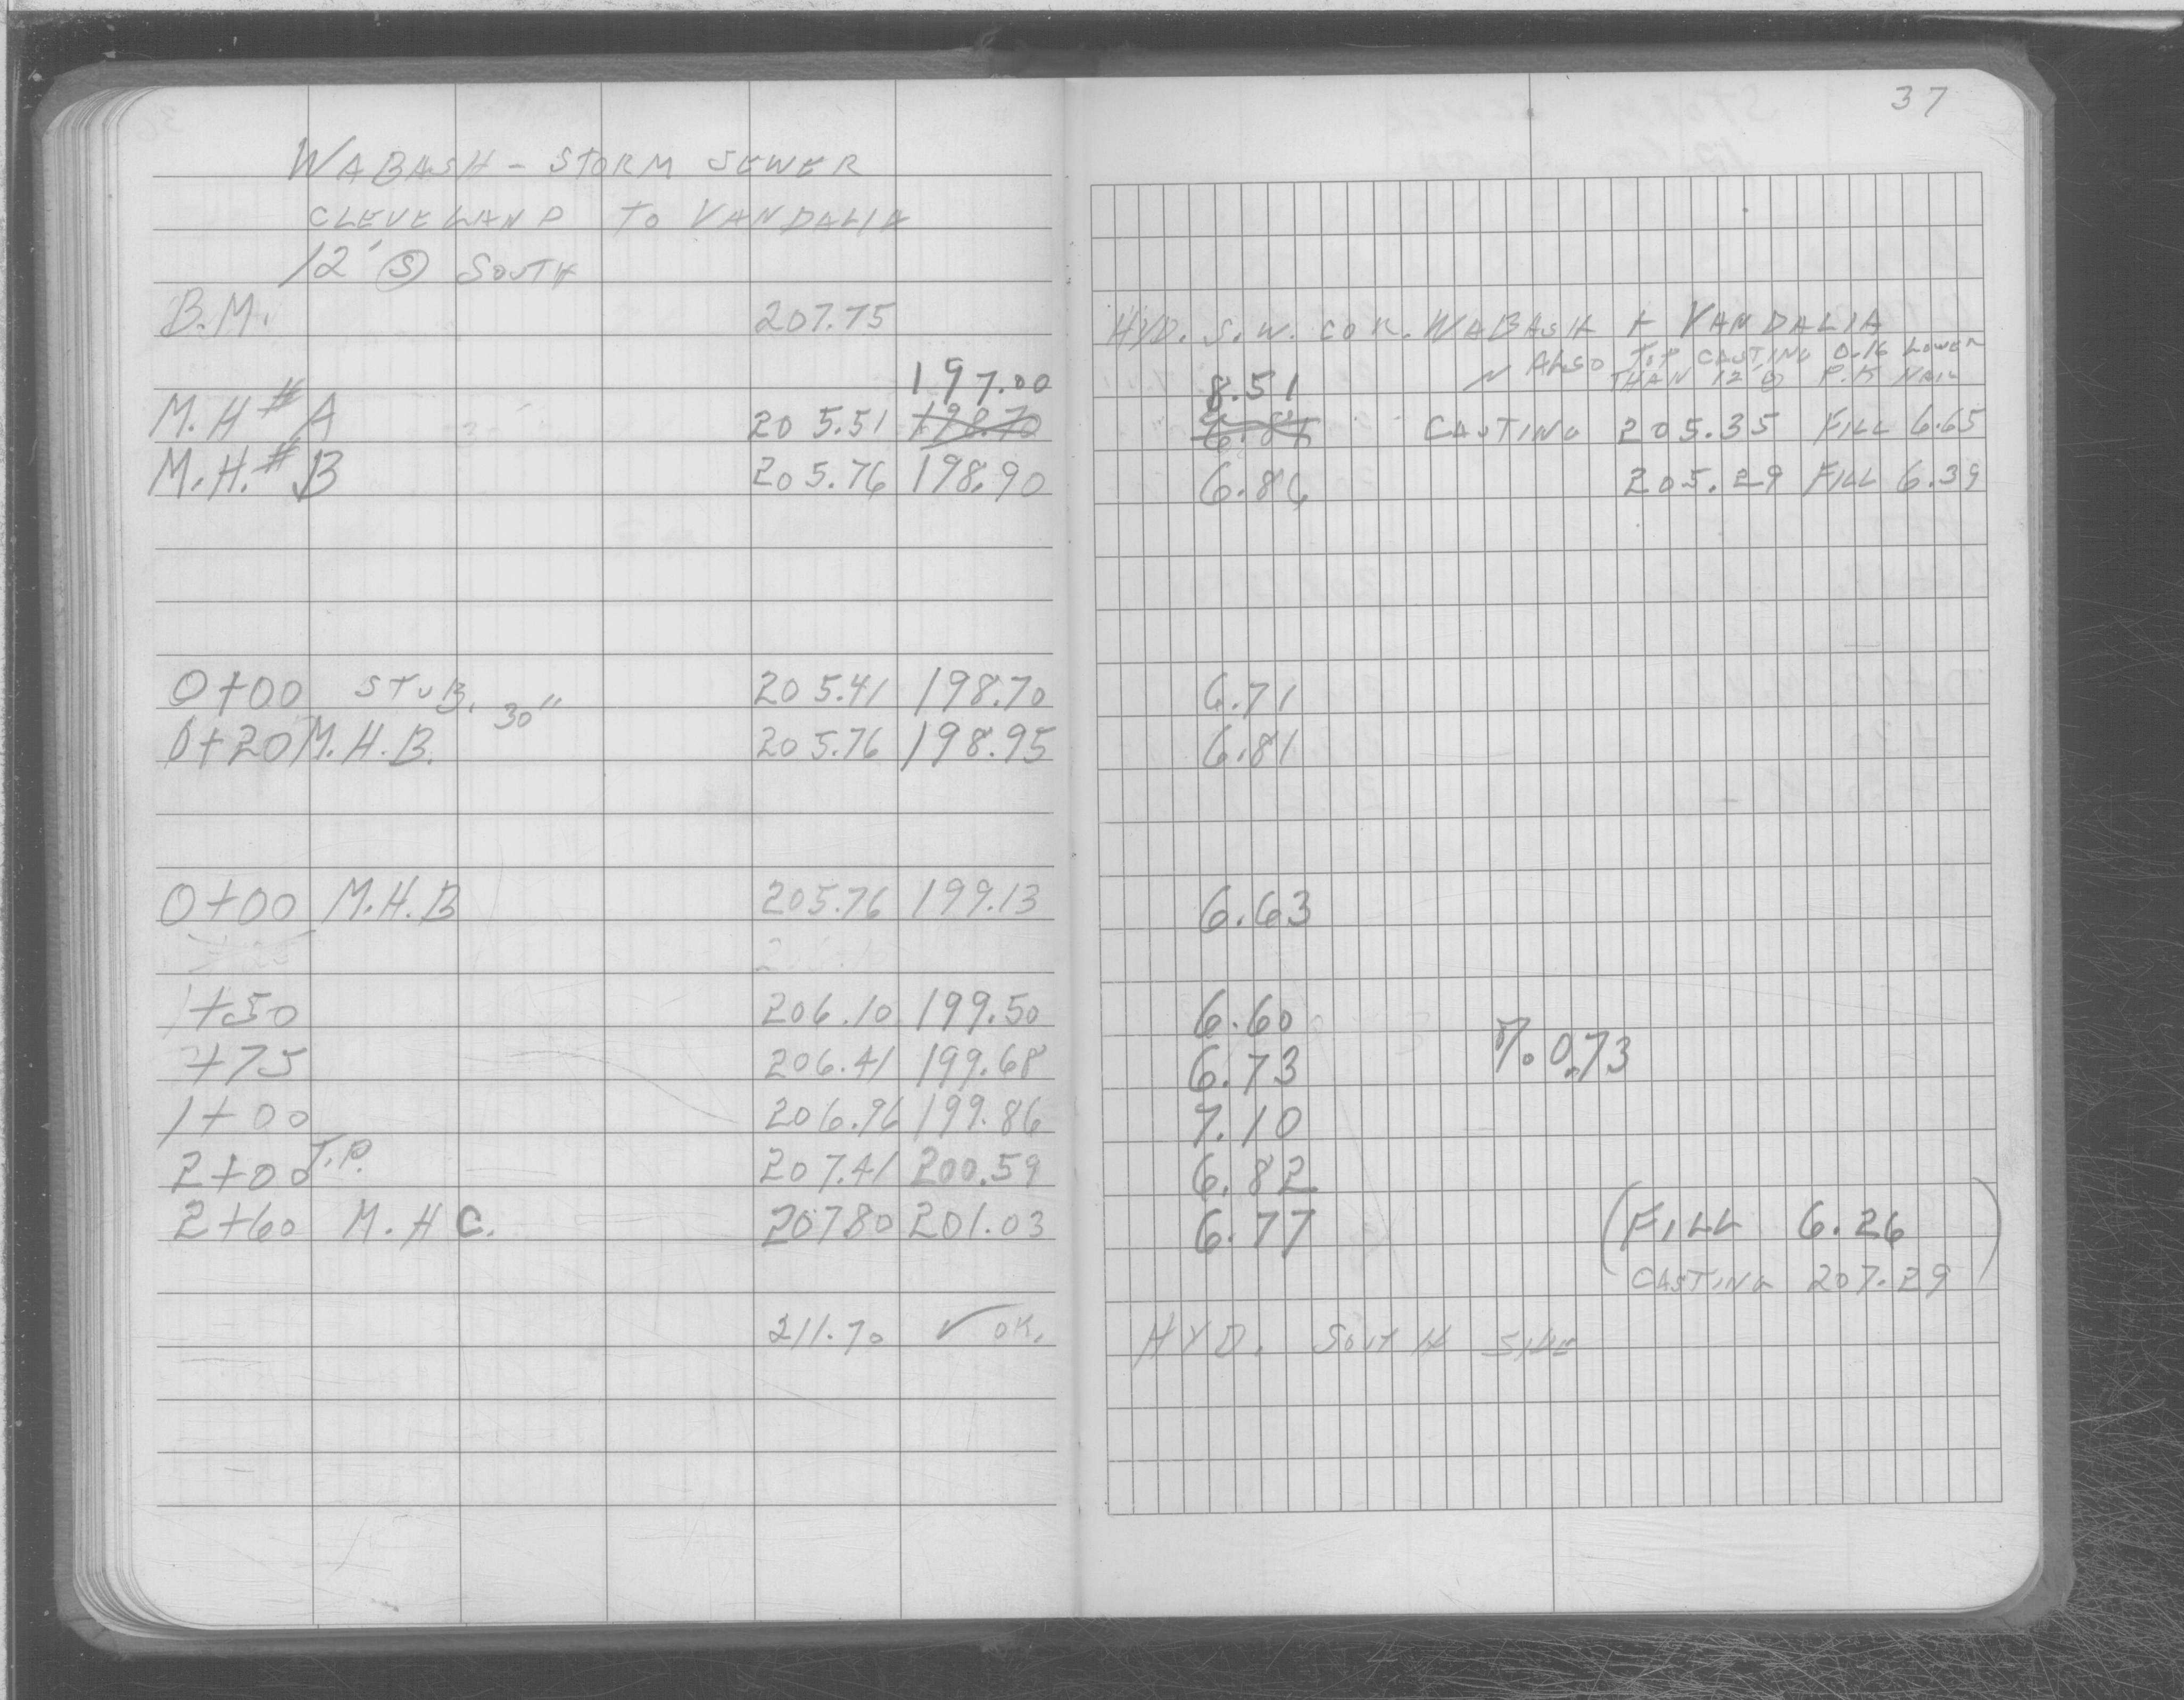 37
WABASH - STORM SEWER
CLEVELAND TO VANDALIA
12' Ⓢ SOUTH
B.M. 207.75 HYD. S.W. COR. WABASH + VANDALIA
ALSO TOP CASTING 0.16 LOWER
THAN 12' P.K NAIL
197.00 8.51
M.H # A 205.51 198.70 CASTING 205.35 FILL 6.65
M.H. # B 205.76 198.90 6.86 205.29 FILL 6.39
0+00 STUB. 30" 205.41 198.70 6.71
0+20 M.H.B. 205.76 198.95 6.81
0+00 M.H.B 205.76 199.13 6.63
1+50 206.10 199.50 6.60
+75 206.41 199.68 6.73 % 0.73
1+00 206.96 199.86 7.10
2+00 T.P. 207.41 200.59 6.82
2+60 M.H C. 207.80 201.03 6.77 (FILL 6.26
CASTING 207.29)
211.70 ✓ OK. HYD. SOUTH SIDE